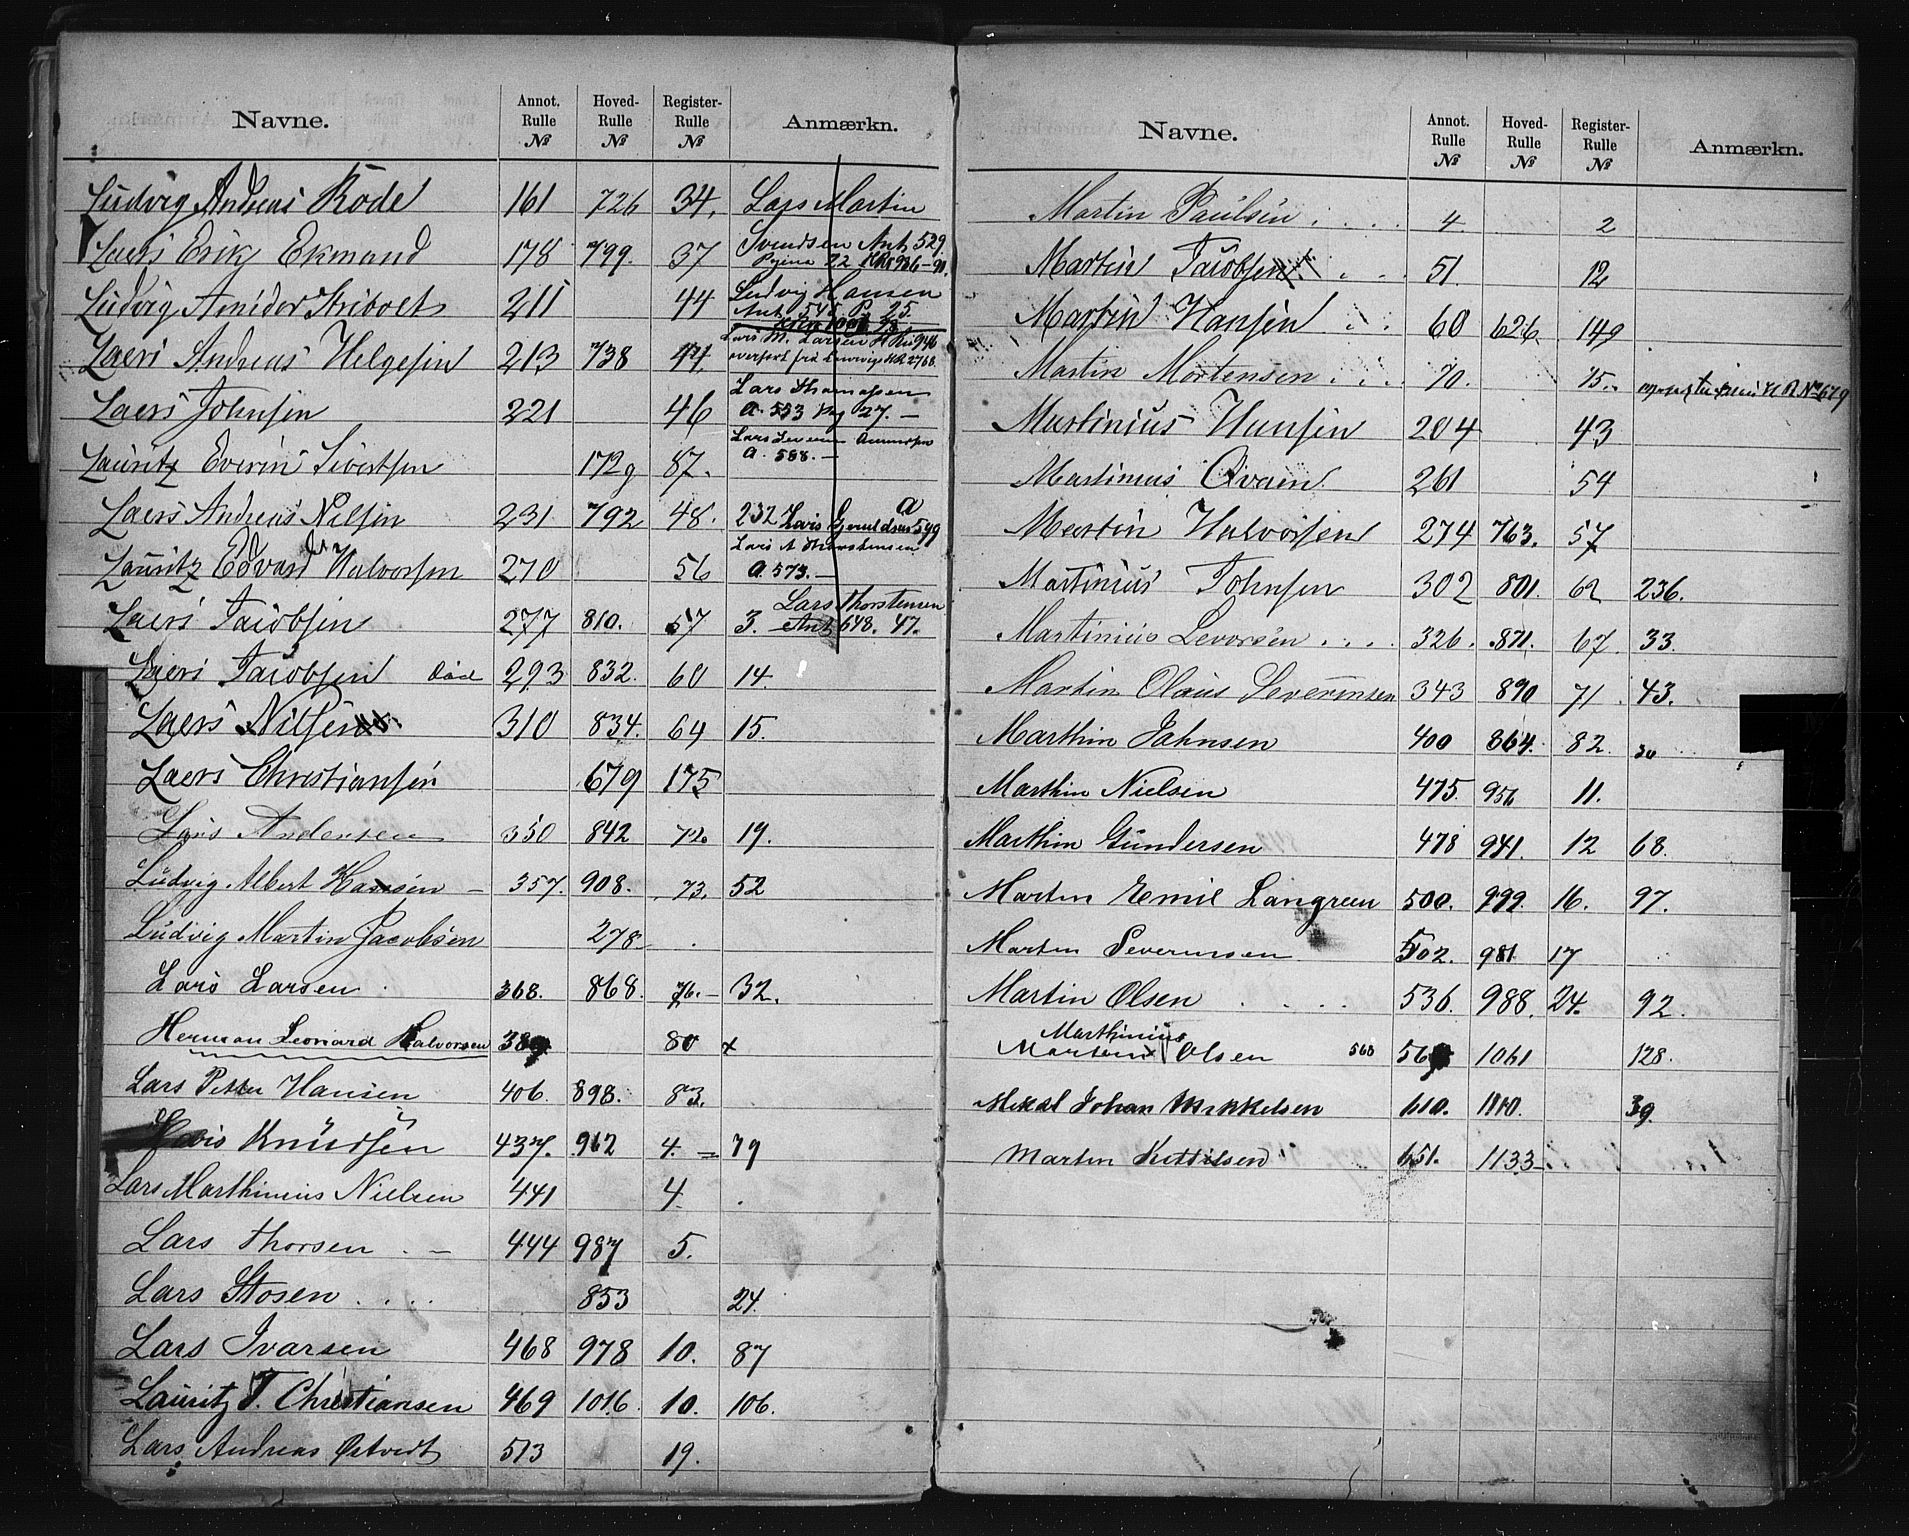 Navne. Annot. Rulle № Hoved-Rulle № Register-Rulle № Anmærkn.
Ludvig Andreas Rode 161 726 34. Lars Martin
Laers Erik Ekmand 178 799. 37 Svendsen Ant. 529. Pagina 22
Ludvig Amidor Triboet 211 44 Ludvig Hansen
Ant. 545 P. 25.
Laers Andreas Helgesen 213 738 44. Lars M. Larsen H R 946
overført fra Lauvig HR 2768.
Laers Johnsen 221 46 Lars Thomassen
A. 553 Pag 27. —
Lauritz Everin Sivertsen 1729 87. Lars
A. 588. —
Laers Andreas Nilsen 231 792 48. 232 Lars A 599
Lauritz Edvard Halvorsen 270 56 Lars A Thorstensen
A. 573. —
Laers Jacobsen 277 810. 57 3. Lars Thorstensen
Ant. 648. 47.
Laers Jacobsen död 293 832. 60 14.
Laers Nilsen 310 834. 64 15.
Laers Christiansen 679 175
Lars Andersen 350 842 72. 19.
Ludvig Albert Hansen — 357. 908. 73. 52
Ludvig Martin Jacobsen 278
Lars Larsen 368. 868. 76. — 32.
Herman Leonard Halvorsen 389 80 x
Lars Petter Hansen 406. 898. 83.
Knudsen 437. 962 4. — 79
Lars Marthinius Nielsen 441 4.
Lars Thorsen . — 444 987 5.
Lars Stosen . . . . 853 24.
Lars Ivarsen 468 978 10. 87
Lauritz T. Christiansen 469 1016. 10. 106.
Lars Andreas Østvedt 513 19.
Navne. Annot. Rulle № Hoved-Rulle № Register-Rulle № Anmærkn.
Martin Paulsen . . . . 4 2
Martin Jacobsen . . . 51. 12
Martin Hansen . . 60 626 149
Martin Mortensen . . . 70. 15. H R No 679
Martinius Hansen 204 43
Martinius Qvam 261 54
Martin Halvorsen 274 763. 57
Martinius Johnsen 302 801. 62 236.
Martinius Levorsen . . . . 326. 871. 67. 33.
Martin Olaus Severinsen 343 890 71 43.
Marthin Johnsen 400 864. 82. 30
Marthin Nielsen 475. 956 11.
Marthin Gundersen 478 941. 12 68.
Martin Emil Langreen 500. 999. 16. 97.
Martin Severinsen 502. 981 17
Martin Olsen . . . . 536. 988. 24. 92.
Marthinius
Martin Olsen 560 560 1061 128.
Mikal Johan Mikkelsen 610. 1110. 39.
Martin Kittilsen 651. 1133